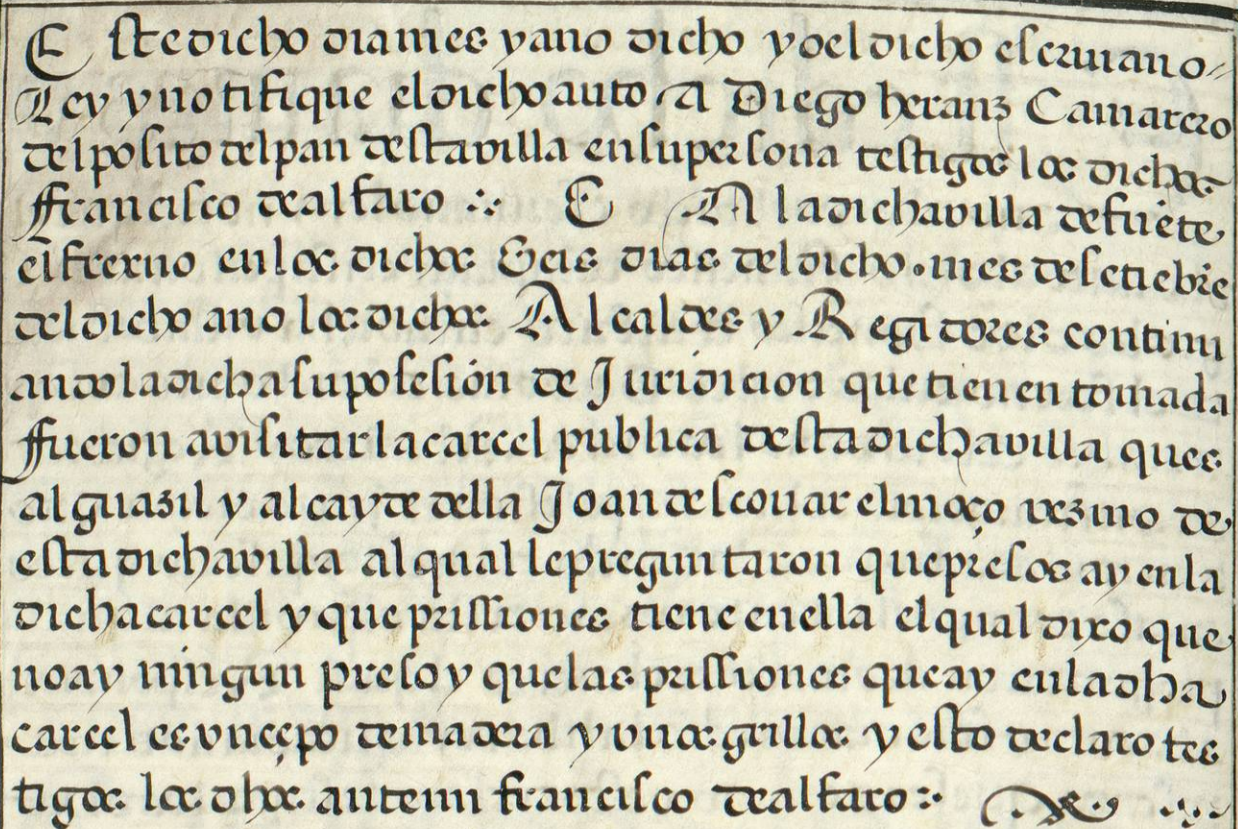 E ste dicho dia mes y ano dicho yo el dicho escruiano
Ley y notifique el dicho auto A Diego heranz Camarero
del posito del pan desta villa en su persona testigos los dichos
ffrancisco de alfaro E A la dicha villa de fuēte
el frexno en los dichos Seis dias del dicho mes de setiēbre
del dicho ano los dichos Alcaldes y Regidores continu
ando la dicha su posesión de Juridicion que tienen tomada
ffueron a visitar la carcel publica desta dicha villa ques
alguazil y alcayde della Joan descouar el moço vezino de
esta dicha villa al qual le preguntaron que presos ay en la
dicha carcel y que prissiones tiene en ella el qual dixo que
no ay ningun preso y que las prissiones que ay en la dha
carcel es vn çepo de madera y vnos grillos y esto declaro tes
tigos los dhos ante mi francisco de alfaro